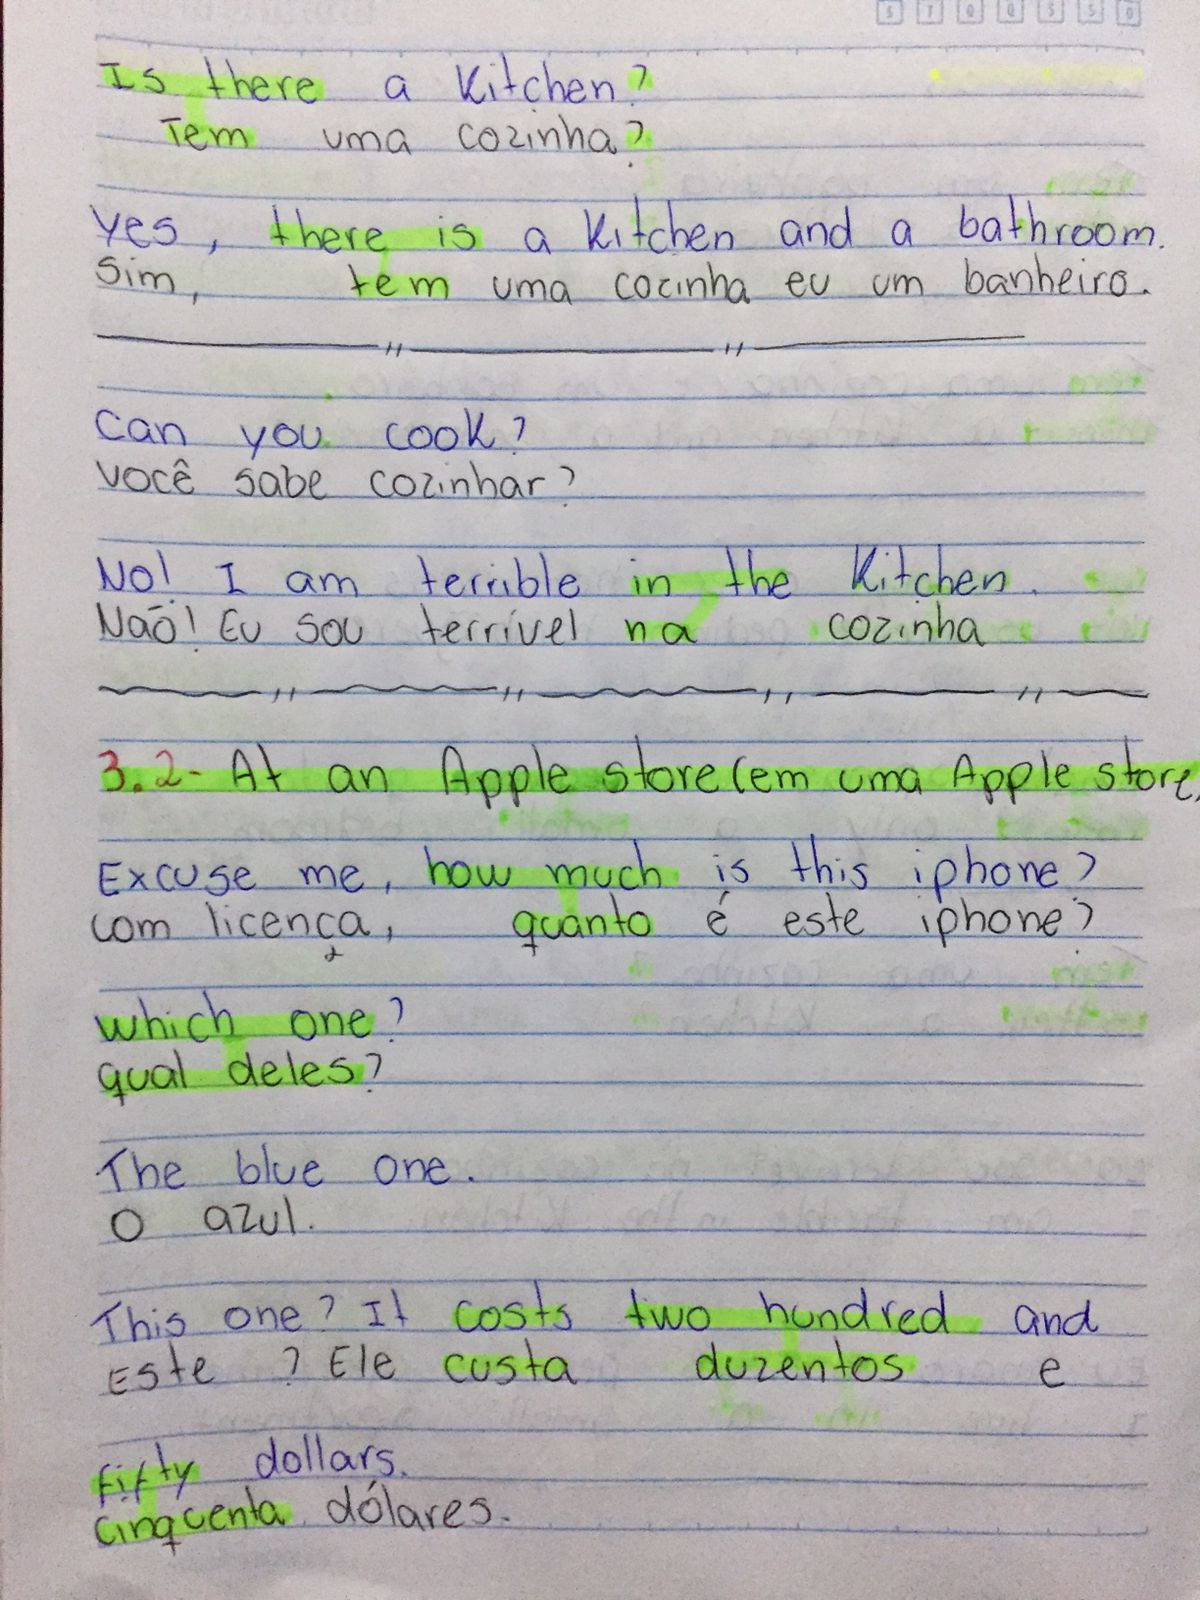 S T Q Q S S D
Is there a Kitchen?
Tem uma cozinha?
Yes, there is a Kitchen and a bathroom.
Sim, tem uma cozinha eu um banheiro.
Can you cook?
Você sabe cozinhar?
No! I am terrible in the Kitchen.
Não! Eu sou terrível na cozinha
3.2- At an Apple store (em uma Apple store)
Excuse me, how much is this iphone?
com licença, quanto é este iphone?
which one?
qual deles?
The blue one.
O azul.
This one? It costs two hundred and
Este ? Ele custa duzentos e
fifty dollars.
cinquenta dólares.